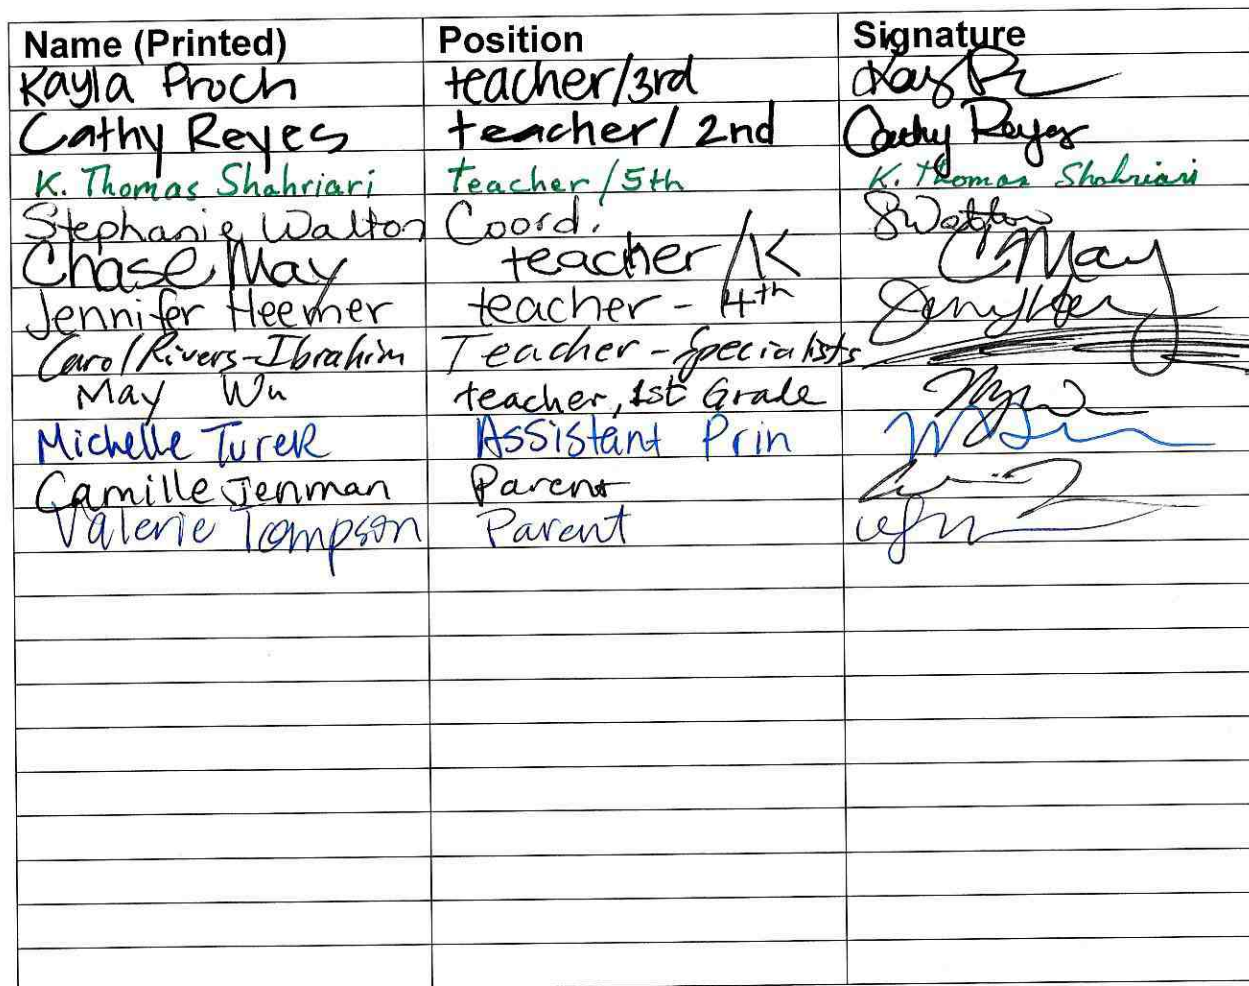 Name (Printed) Position Signature
Kayla Proch teacher/3rd
Cathy Reyes teacher/ 2nd Cathy Reyes
K. Thomas Shahriari teacher/5th K. Thomas Shahriari
Stephanie Walton Coord. SWalton
Chase May teacher/K C May
Jennifer Heemer teacher - 4th
Carol Rivers-Ibrahim Teacher - Specialists
May Wu teacher, 1st Grade
Michelle Turek Assistant Prin
Camille Jenman Parent
Valerie Tompson Parent